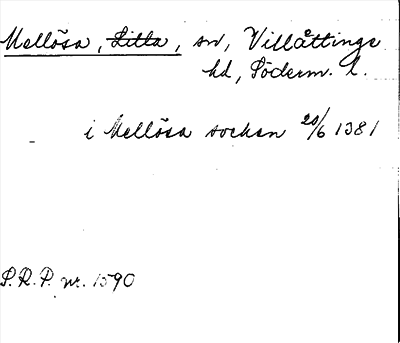 Mellösa, Lilla, sn, Villåttinge
hd, Söderm. l.
i Mellösa socken 20/6 1381
S.R.P. nr. 1590